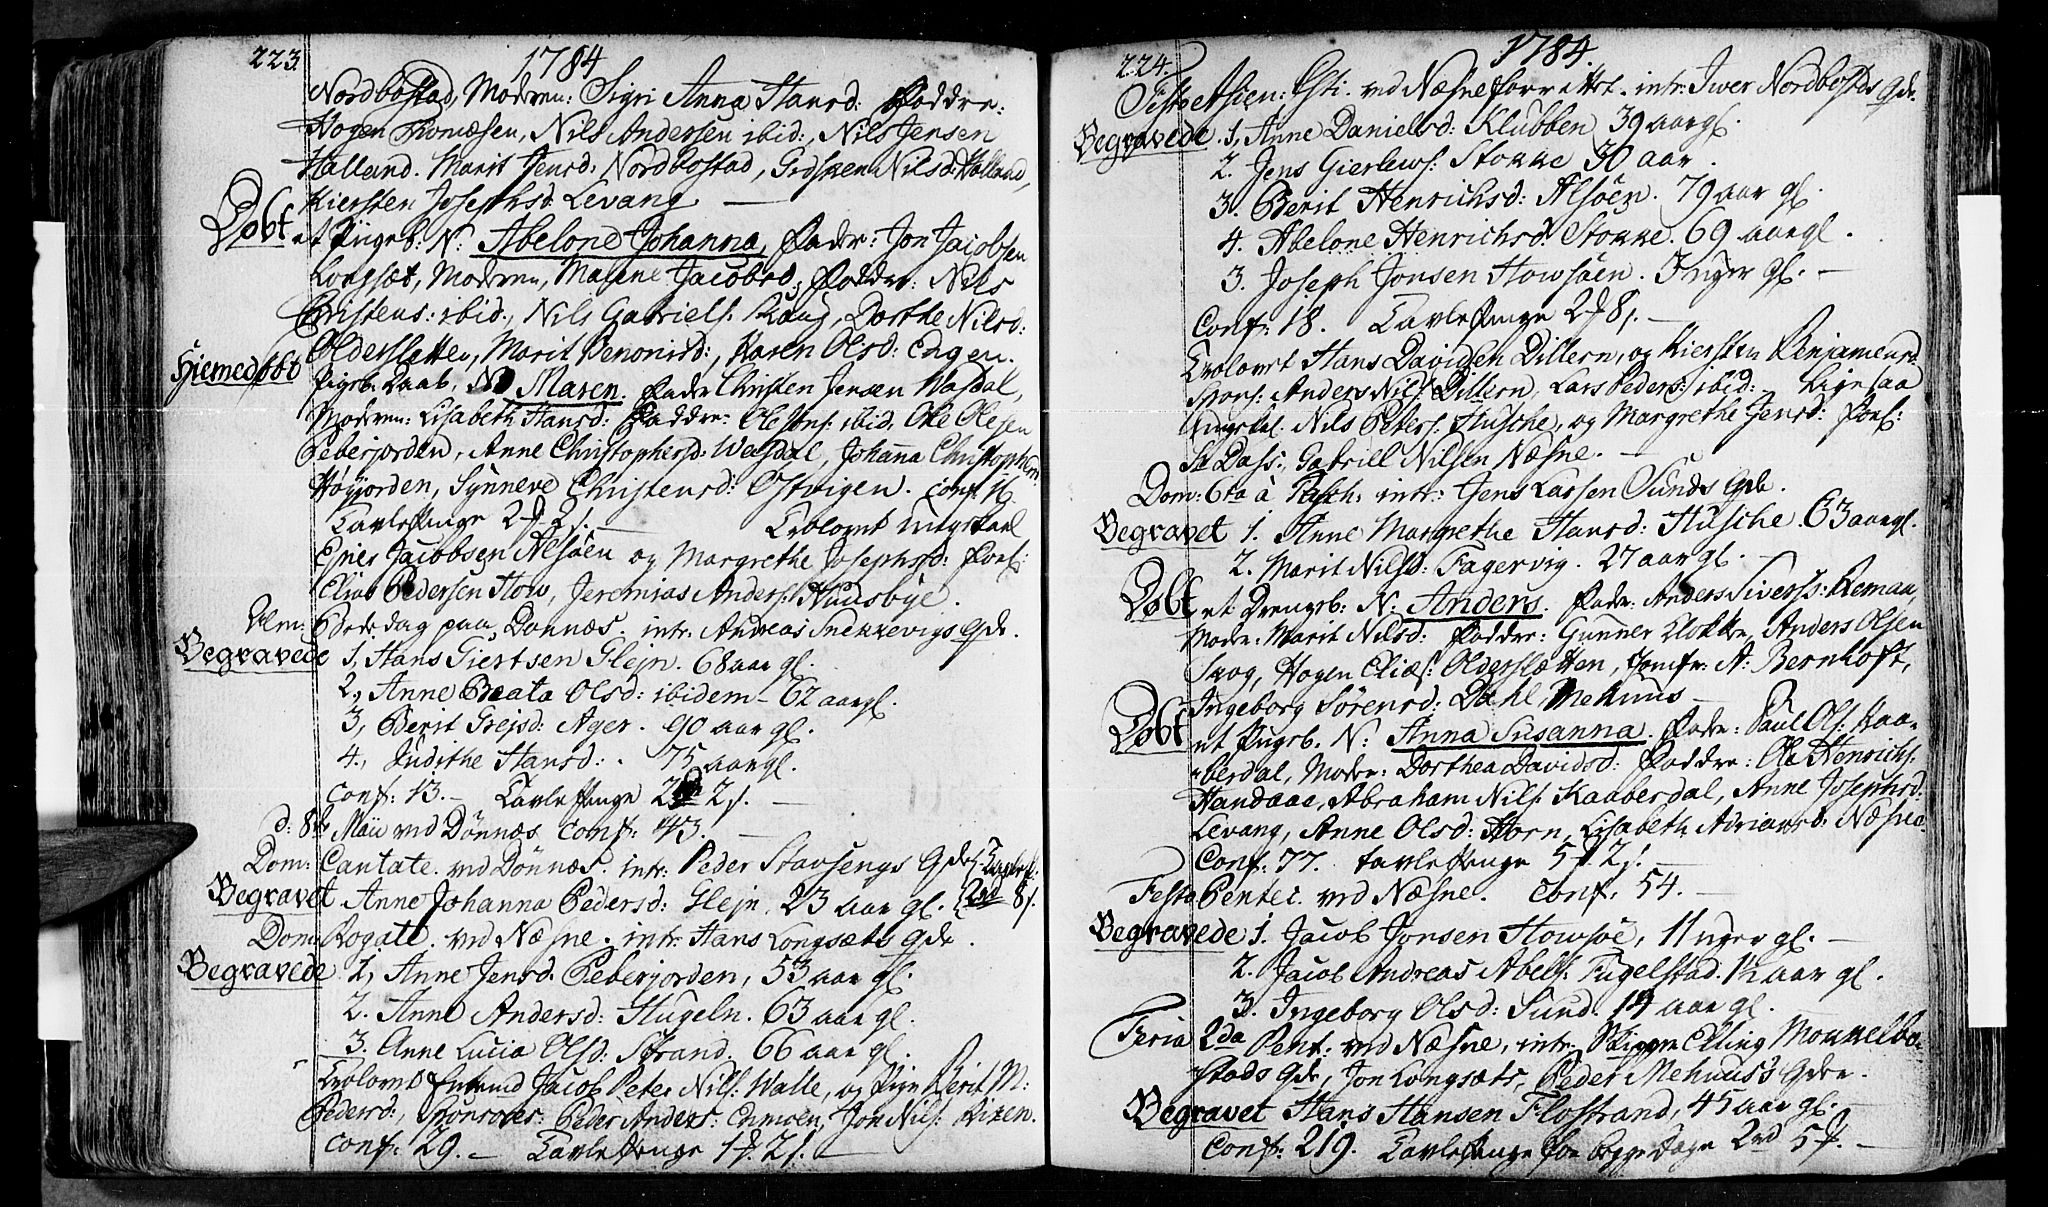 223.
1784
Nordbostad, Modren: Sigri Anna Hansd: Faddre:
Hogen Thomæsen, Nils Andersen ibid:, Nils Jensen
Halland. Marit Jensd: Nordbostad, Nilsd: Halland,
Kiersten Josephsd: Levang —
Døbt et Pigeb: N: Abelone Johanna, Fadr: Jon Jacobsen
Longsæt, Modren, Jacobsd, Faddr: Nils
Christens: ibid:, Nils Gabriels: Dorthe Nilsd:
Olderslætten, Marit Benonisd:, Karen Olsd: Engen.
Hiemedøbt Pigeb: Daab, N: Maren. Fadr Christen Jensen Wasdal,
Modren: Lisabeth Hansd: Faddre: Ole ibid. Ole Olesen
Peberjorden, Anne Christophersd: Wasdal, Johanna Christophersd:
Høyjorden, Synneve Christensd: Østvigen. Conf: 16
Tavle Penge 2 2 s. — Trolovet Ungkarl
Jacobsen Alsøen og Margrethe Josephsd: Forl:
Elias Pedersen How, Jeremias Anders: Huusbye.
Alm: Bededag paa Dønnæs. intr: Andreas Snekkevigs Qde.
Begravede 1, Hans Giertsen Glejn. 68 aar gl.
2, Anne Beata Olsd: ibidem — 62 aar gl.
3, Berit Grejsd: Ager. 90 aar gl.
4, Judithe Hansd: . 75 aar gl.
Conf: 13. — Tavle Penge 2 2 s. —
d: 8de Maii ved Dønnæs conf: 43. —
Dom: Cantate. ved Dønnæs. intr: Peder Stavsengs Qde
Begravet Anne Johanna Pedersd: Glejn. 23 aar gl. 8 s.
Dom: Rogate. ved Næsne. intr: Hans Longsæts Qde.
Begravede 1, Anne Jensd: Peberjorden, 53 aar gl.
2. Anne Andersd: Hugeln. 63 aar gl.
3. Anne Lucia Olsd: Strand. 66 aar gl.
Trolovet Jacob Peter Nils: Walle, og Pige Berit M:
Pedersd:, Sponsores: Peder Anders: Jon Nils:
Conf: 29. — Tavle Penge 1 2 s. —
224.
1784.
Festo Ascen: Xsti. ved Næsne forrettet. intr: Iwer Nordbostds Qde.
Begravede 1, Anne Danielsd: Klubben 39 aar gl.
2. Jens Stokke 30 aar.
3. Berit Henrichsd: Alsøen. 79 aar gl.
4. Abelone Henrichsd: Stokke. 69 aar gl.
3. Joseph Jonsen Howsøen. gl. —
Conf: 18. Tavle Penge 2 8 s. —
Trolovet Hans Davidsen Dillern, og Kiersten Benjaminsd:
Spons: Anders Nils: Dillern, Lars Peders: ibid: — Ligesaa
Ungkal. Nils Peters: Husche, og Margrethe Jensd: Forl:
Dass:, Gabriel Nilsen Næsne. —
Dom: 6ta à Pasch: intr: Jens Larsen Sunds Qde.
Begravet 1. Anne Margrethe Hansd: Husche. 63 aar gl.
2. Marit Nilsd: Fagervig. 27 aar gl. —
Døbt et Drengeb: N: Anders. Fadr: Anders Siverss: Reman,
Modr: Marit Nilsd: Faddre: Gunner Anders Olsen
Skog, Hogen Elias: Olderslætten, Jomfr: A: Bernhoft,
Ingeborg Sørensd: Dahl Mehuus —
Døbt et Pigeb. N: Anna Susanna. Fadr: Paul Ols: Kaa-
berdal, Modr: Dorthea Davidsd: Faddre: Ole Henrichs:
Handaae, Abraham Nils: Kaaberdal, Anne Josephsd:
Levang, Anne Olsd: Horn, Lisabeth Adriansd: Næsne.
Conf: 77. tavle Penge 5 2 s. —
Festo Pentec. ved Næsne. Conf: 54. —
Begravede 1. Jacob Jonsen Howsøe, 11 uger gl. —
2. Jacob Andreas Abels: Fugelstad. 1½ aar gl.
3. Ingeborg Olsd: Sund. 14 aar gl.
Feria 2da Pent: ved Næsne, intr: Elling Mokkelbo-
stads Qde, Jon Longsæts, Peder Mehuus's Qder.
Begravet Hans Hansen Flostrand, 45 aar gl. —
Conf: 219. Tavle Penge for begge Dage 2 5 —